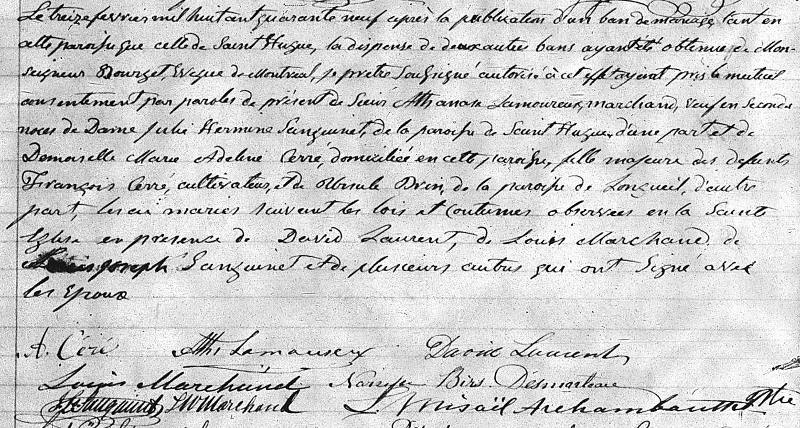 Le treize fevrier mil huit cent quarante neuf après la publication d'un ban de mariage, tant en
cette paroisse que celle de Saint Hugue, la dispense de deux autres bans ayant été obtenue de Mon-
seigneur Bourget, Eveque de Montreal, je prêtre soussigné autorisé à cet effet ayant pris le mutuel
consentement par paroles de présent de Sieur Athanase Lamoureux, marchand, veuf en secondes
noces de Dame Julie Hermine Sanguinet, de la paroisse de Saint Hugue, d'une part et de
Demoiselle Marie Adeline Cerré, domiciliée en cette paroisse, fille majeure des defunts
François Cerré, cultivateur, et de Ursule Brin, de la paroisse de Longueil, d'autre
part, les ai mariés suivant les lois et Coutumes observées en la Sainte
Eglise en présence de David Laurent, de Louis Marchand, de
Joseph Sanguinet et de plusieurs autres qui ont signé avec
les Epoux
A. Ceré Aths Lamoureux David Laurent
Louis Marchand Birs Desmarteau
Sanguinet Marchand L. Misaël Archambault Ptre